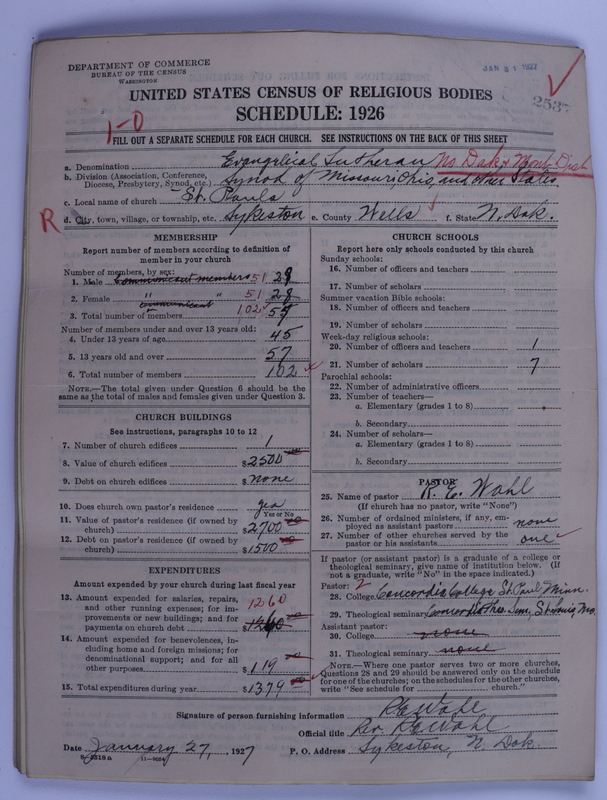 DEPARTMENT OF COMMERCE
BUREAU OF THE CENSUS
WASHINGTON
JAN 31 1927
2537
UNITED STATES CENSUS OF RELIGIOUS BODIES
SCHEDULE: 1926
1-0
FILL OUT A SEPARATE SCHEDULE FOR EACH CHURCH. SEE INSTRUCTIONS ON THE BACK OF THIS SHEET
a. Denomination Evangelical Lutheran No Dak & Mont. Dist
b. Division (Association, Conference, Diocese, Presbytery, Synod, etc.) Synod of Missouri, Ohio, and other States
c. Local name of church St. Pauls
R
d. City, town, village, or township, etc. Sykeston e. County Wells f. State N. Dak.
MEMBERSHIP
Report number of members according to definition of member in your church
Number of members, by sex:
1. Male communicant members 51 29
2. Female " " 51 28
3. Total number of communicant members 102 57
Number of members under and over 13 years old:
4. Under 13 years of age 45
5. 13 years old and over 57
6. Total number of members 102
NOTE.—The total given under Question 6 should be the same as the total of males and females given under Question 3.
CHURCH BUILDINGS
See instructions, paragraphs 10 to 12
7. Number of church edifices 1
8. Value of church edifices $2500
9. Debt on church edifices $ none
10. Does church own pastor's residence yes
Yes or No
11. Value of pastor's residence (if owned by church) $2700
12. Debt on pastor's residence (if owned by church) $1500
EXPENDITURES
Amount expended by your church during last fiscal year
13. Amount expended for salaries, repairs, and other running expenses; for improvements or new buildings; and for payments on church debt $1260
1260
14. Amount expended for benevolences, including home and foreign missions; for denominational support; and for all other purposes $119
15. Total expenditures during year $1379
CHURCH SCHOOLS
Report here only schools conducted by this church
Sunday schools:
16. Number of officers and teachers
17. Number of scholars
Summer vacation Bible schools:
18. Number of officers and teachers
19. Number of scholars
Week-day religious schools:
20. Number of officers and teachers 1
21. Number of scholars 7
Parochial schools:
22. Number of administrative officers
23. Number of teachers—
a. Elementary (grades 1 to 8)
b. Secondary
24. Number of scholars—
a. Elementary (grades 1 to 8)
b. Secondary
PASTOR
25. Name of pastor R. E. Wahl
(If church has no pastor, write "None")
26. Number of ordained ministers, if any, employed as assistant pastors none
27. Number of other churches served by the pastor or his assistants one
If pastor (or assistant pastor) is a graduate of a college or theological seminary, give name of institution below. (If not a graduate, write "No" in the space indicated.)
Pastor: 2
28. College Concordia College St. Paul Minn.
29. Theological seminary Concordia Theo. Sem., St. Louis, Mo.
Assistant pastor:
30. College none
31. Theological seminary none
NOTE.—Where one pastor serves two or more churches, Questions 28 and 29 should be answered only on the schedule for one of the churches; on the schedules for the other churches, write "See schedule for church."
Signature of person furnishing information R E Wahl
Official title Rev. R E Wahl
Date January 27, 1927 P. O. Address Sykeston, N. Dak.